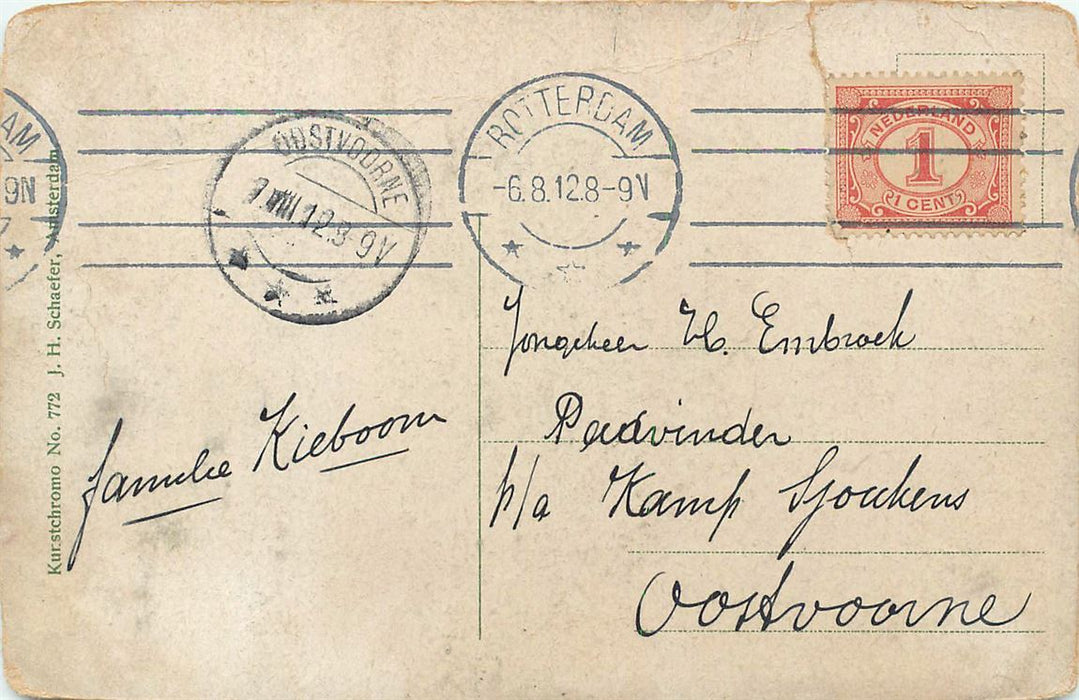 AM
9N
OOSTVOORNE
7 VIII 12.8-9V
ROTTERDAM
-6.8.12.8-9V
NEDERLAND
1
1 CENT
Jongeheer H. Embroek
Padvinder
p/a Kamp
Oostvoorne
familie Kieboom
Kunstchromo No. 772 J. H. Schaefer, Amsterdam